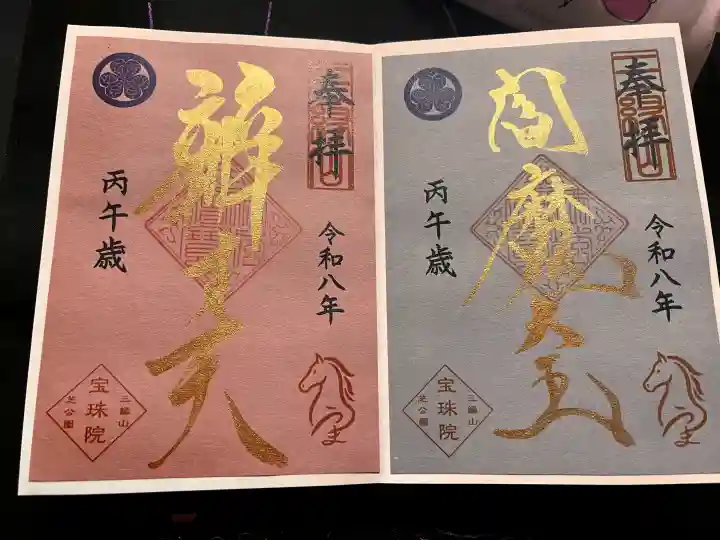 奉拝
令和八年
辨才天
丙午歳
三縁山
宝珠院
芝公園
奉拝
令和八年
閻魔大王
丙午歳
三縁山
宝珠院
芝公園